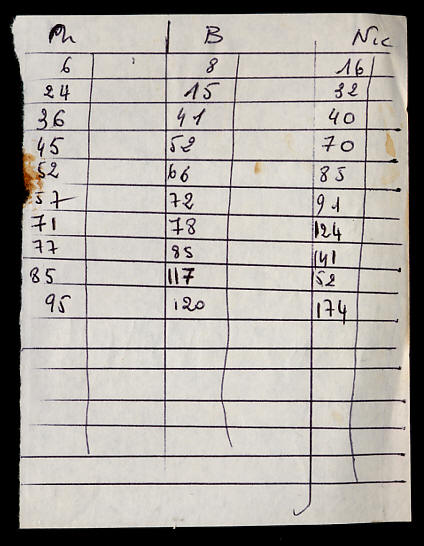 Ph B Nic
6 8 16
24 15 32
36 41 40
45 52 70
52 66 85
57 72 91
71 78 124
77 85 141
85 117 52
95 120 174